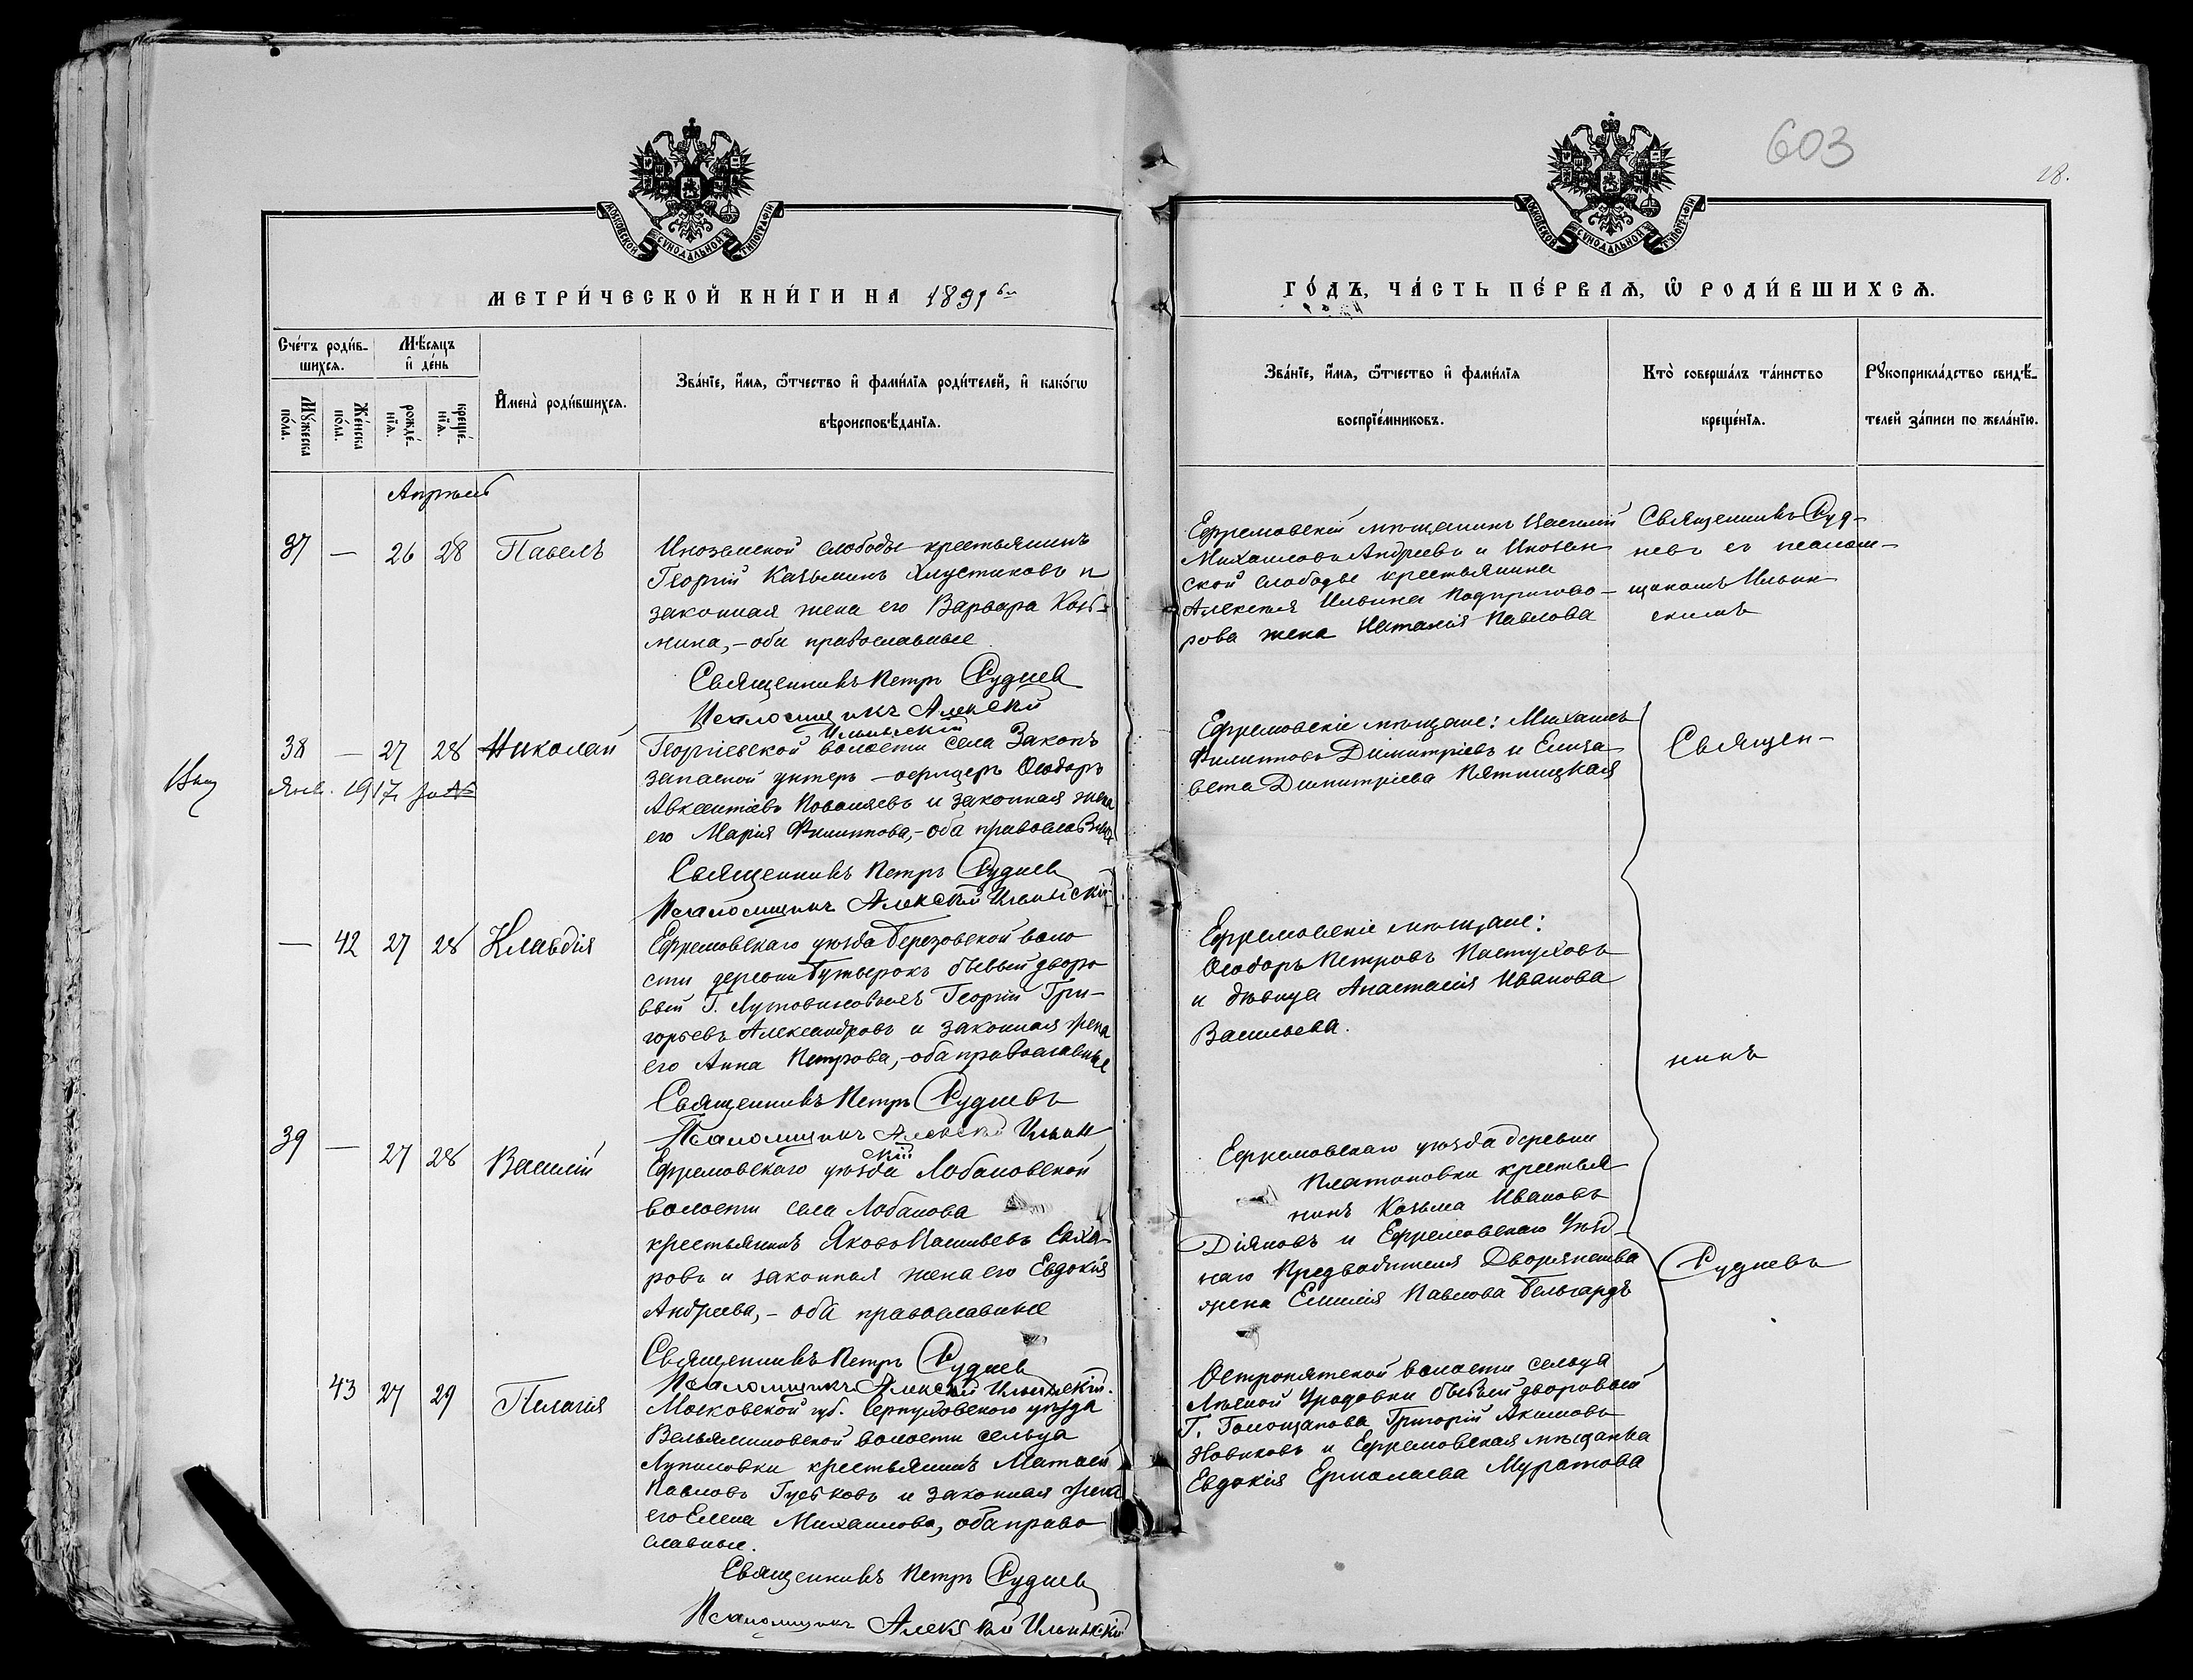 603
18.
МОСКОВСКОЙ СѴНОДАЛЬНОЙ ТИПОГРАФІИ
МОСКОВСКОЙ СѴНОДАЛЬНОЙ ТИПОГРАФІИ
МЕТРИ́ЧЕСКОЙ КНИ́ГИ НА 1891
ГО́ДЪ, ЧА́СТЬ ПЕ́РВАѦ, Ѡ҆ РОДИ́ВШИХСѦ.
Сче́тъ роди́в-
шихсѧ.
Мѣ́сѧцъ
и҆ де́нь
Му́жеска
по́ла.
Же́нска
по́ла.
рожде́-
нїѧ.
креще́-
нїѧ.
И҆мена̀ роди́вшихсѧ.
Зва́нїе, и҆́мѧ, ѻ҆́тчество и҆ фами́лїѧ роди́телей, и҆ како́гѡ
вѣроисповѣ́данїѧ.
Зва́нїе, и҆́мѧ, ѻ҆́тчество и҆ фами́лїѧ
воспрїе́мниковъ.
Кто̀ соверша́лъ та́инство
креще́нїѧ.
Рꙋкоприкла́дство свидѣ́-
телей за́писи по жела́нїю.
Апрѣль
37 — 26 28 Павелъ
Иноземской слободы крестьянинъ
Георгій Казьминъ Хлустиковъ и
законная жена его Варвара Козь-
мина,- оба православные
Священникъ Петръ Руднев
Псаломщикъ Алексѣй
Ильинскій
Ефремовскій мѣщанинъ Василій
Михаиловъ Андреевъ и Инозем
ской слободы крестьянина
Алексѣя Ильина Подпригово-
рова жена Наталія Павлова
Священникъ Руд-
невъ съ псалом-
щикомъ Ильин
скимъ
38 — 27 28 Николай
Янв. 1917
Георгіевской волости села Закопъ
запасной унтеръ-офицеръ Ѳеодоръ
Авксентіевъ Коваляевъ и законная жена
его Марія Филиппова,- оба православные
Священникъ Петръ Руднев
Псаломщикъ Алексѣй Ильинскій
Ефремовскіе мѣщане: Михаилъ
Филипповъ Димитріевъ и Елиза-
вета Димитріева Пятницкая
Священ-
— 42 27 28 Клавдія
Ефремовскаго уѣзда Березовской воло
сти деревни Бутырокъ бывшій дворо
вый Г. Лутовиновыхъ Георгій Гри-
горьевъ Александровъ и законная жена
его Анна Петрова,- оба православные
Священникъ Петръ Рудневъ
Псаломщикъ Алексѣй Ильин
скій
Ефремовскіе мѣщане:
Ѳеодоръ Петровъ Пастуховъ
и дѣвица Анастасія Иванова
Васильева.
никъ
39 — 27 28 Василій
Ефремовскаго уѣзда Лобановской
волости села Лобанова
крестьянинъ Яковъ Васильевъ Саха-
ровъ и законная жена его Евдокія
Андреева,- оба православные
Священникъ Петръ Руднев
Псаломщикъ Алексѣй Ильинскій.
Ефремовскаго уѣзда деревни
Платоновки крестья
нинъ Козьма Ивановъ
Діяковъ и Ефремовскаго Уѣзд-
наго Предводителя Дворянства
жена Емилія Павлова Бельгардъ
Рудневъ
43 27 29 Пелагія
Московской губ. Серпуховского уѣзда
Вельяминовской волости сельца
Лупиловки крестьянинъ Матвѣй
Павловъ Губковъ и законная жена
его Елена Михаилова, оба право
славные.
Священникъ Петръ Руднев
Псаломщикъ Алексѣй Ильинскій
Остропятской волости сельца
Лѣсной Уродовки бывшій дворовый
Г. Голощапова Григорій Акимовъ
Новиковъ и Ефремовская мѣщанка
Евдокія Ермолаева Муратова